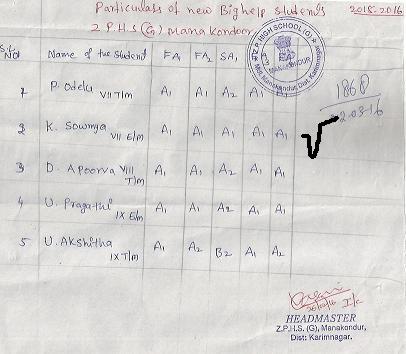 Particulars of new Bighelp students 2015-2016
Z.P.H.S (G) Manakondoor
S.L NO Name of the Student FA1 FA2 SA1
1 P. Odelu VII T/m A1 A1 A2 A1 A1
2 K. Sowmya VII E/m A1 A1 A1 A1 A1
3 D. Apoorva VIII T/m A1 A1 A2 A1 A1
4 U. Pragathi IX E/m A1 A1 A2 A1 A1
5 U. Akshitha IX T/m A1 A2 B2 A1 A2
Z.P. HIGH SCHOOL (G)
MANAKONDUR
Mdl. Manakondur, Dist. Karimnagar
1868
02.03.16
I/c
HEADMASTER
Z.P.H.S. (G), Manakondur,
Dist: Karimnagar.